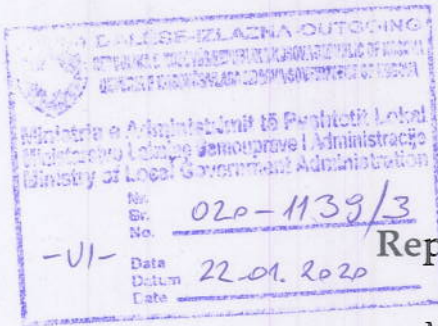 DALËSE-IZLAZNA-OUTGOING
Ministria e Administrimit të Pushtetit Lokal
Ministarstvo Lokalne Samouprave i Administracije
Ministry of Local Government Administration
Nr.
Br.
No.
020-1139/3
-VI-
Rep
Data
Datum
Date
22-01.2020